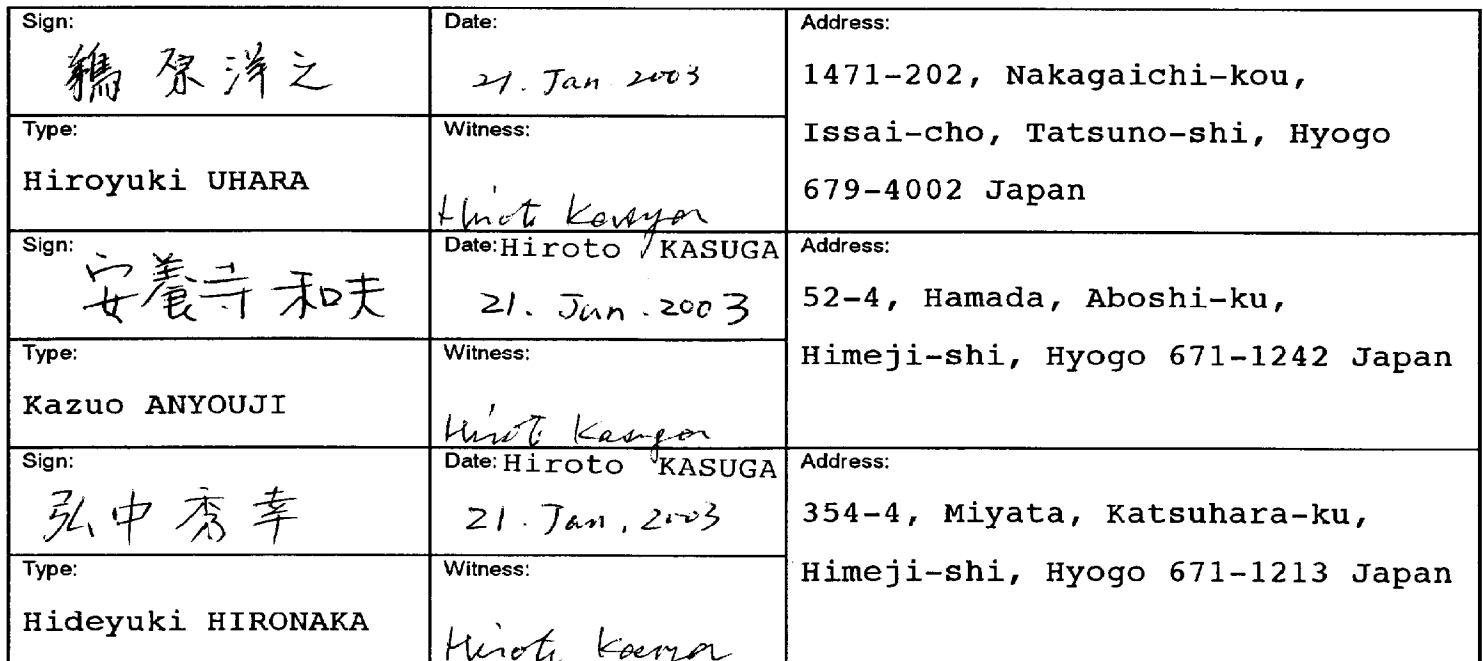 Sign:
鵜原洋之
Date:
21. Jan 2003
Address:
1471-202, Nakagaichi-kou,
Issai-cho, Tatsuno-shi, Hyogo
679-4002 Japan
Type:
Hiroyuki UHARA
Witness:
Hiroto Kasuga
Sign:
安養寺和夫
Date: Hiroto KASUGA
21. Jan. 2003
Address:
52-4, Hamada, Aboshi-ku,
Himeji-shi, Hyogo 671-1242 Japan
Type:
Kazuo ANYOUJI
Witness:
Hiroto Kasuga
Sign:
弘中秀幸
Date: Hiroto KASUGA
21. Jan, 2003
Address:
354-4, Miyata, Katsuhara-ku,
Himeji-shi, Hyogo 671-1213 Japan
Type:
Hideyuki HIRONAKA
Witness:
Hiroto Kasuga